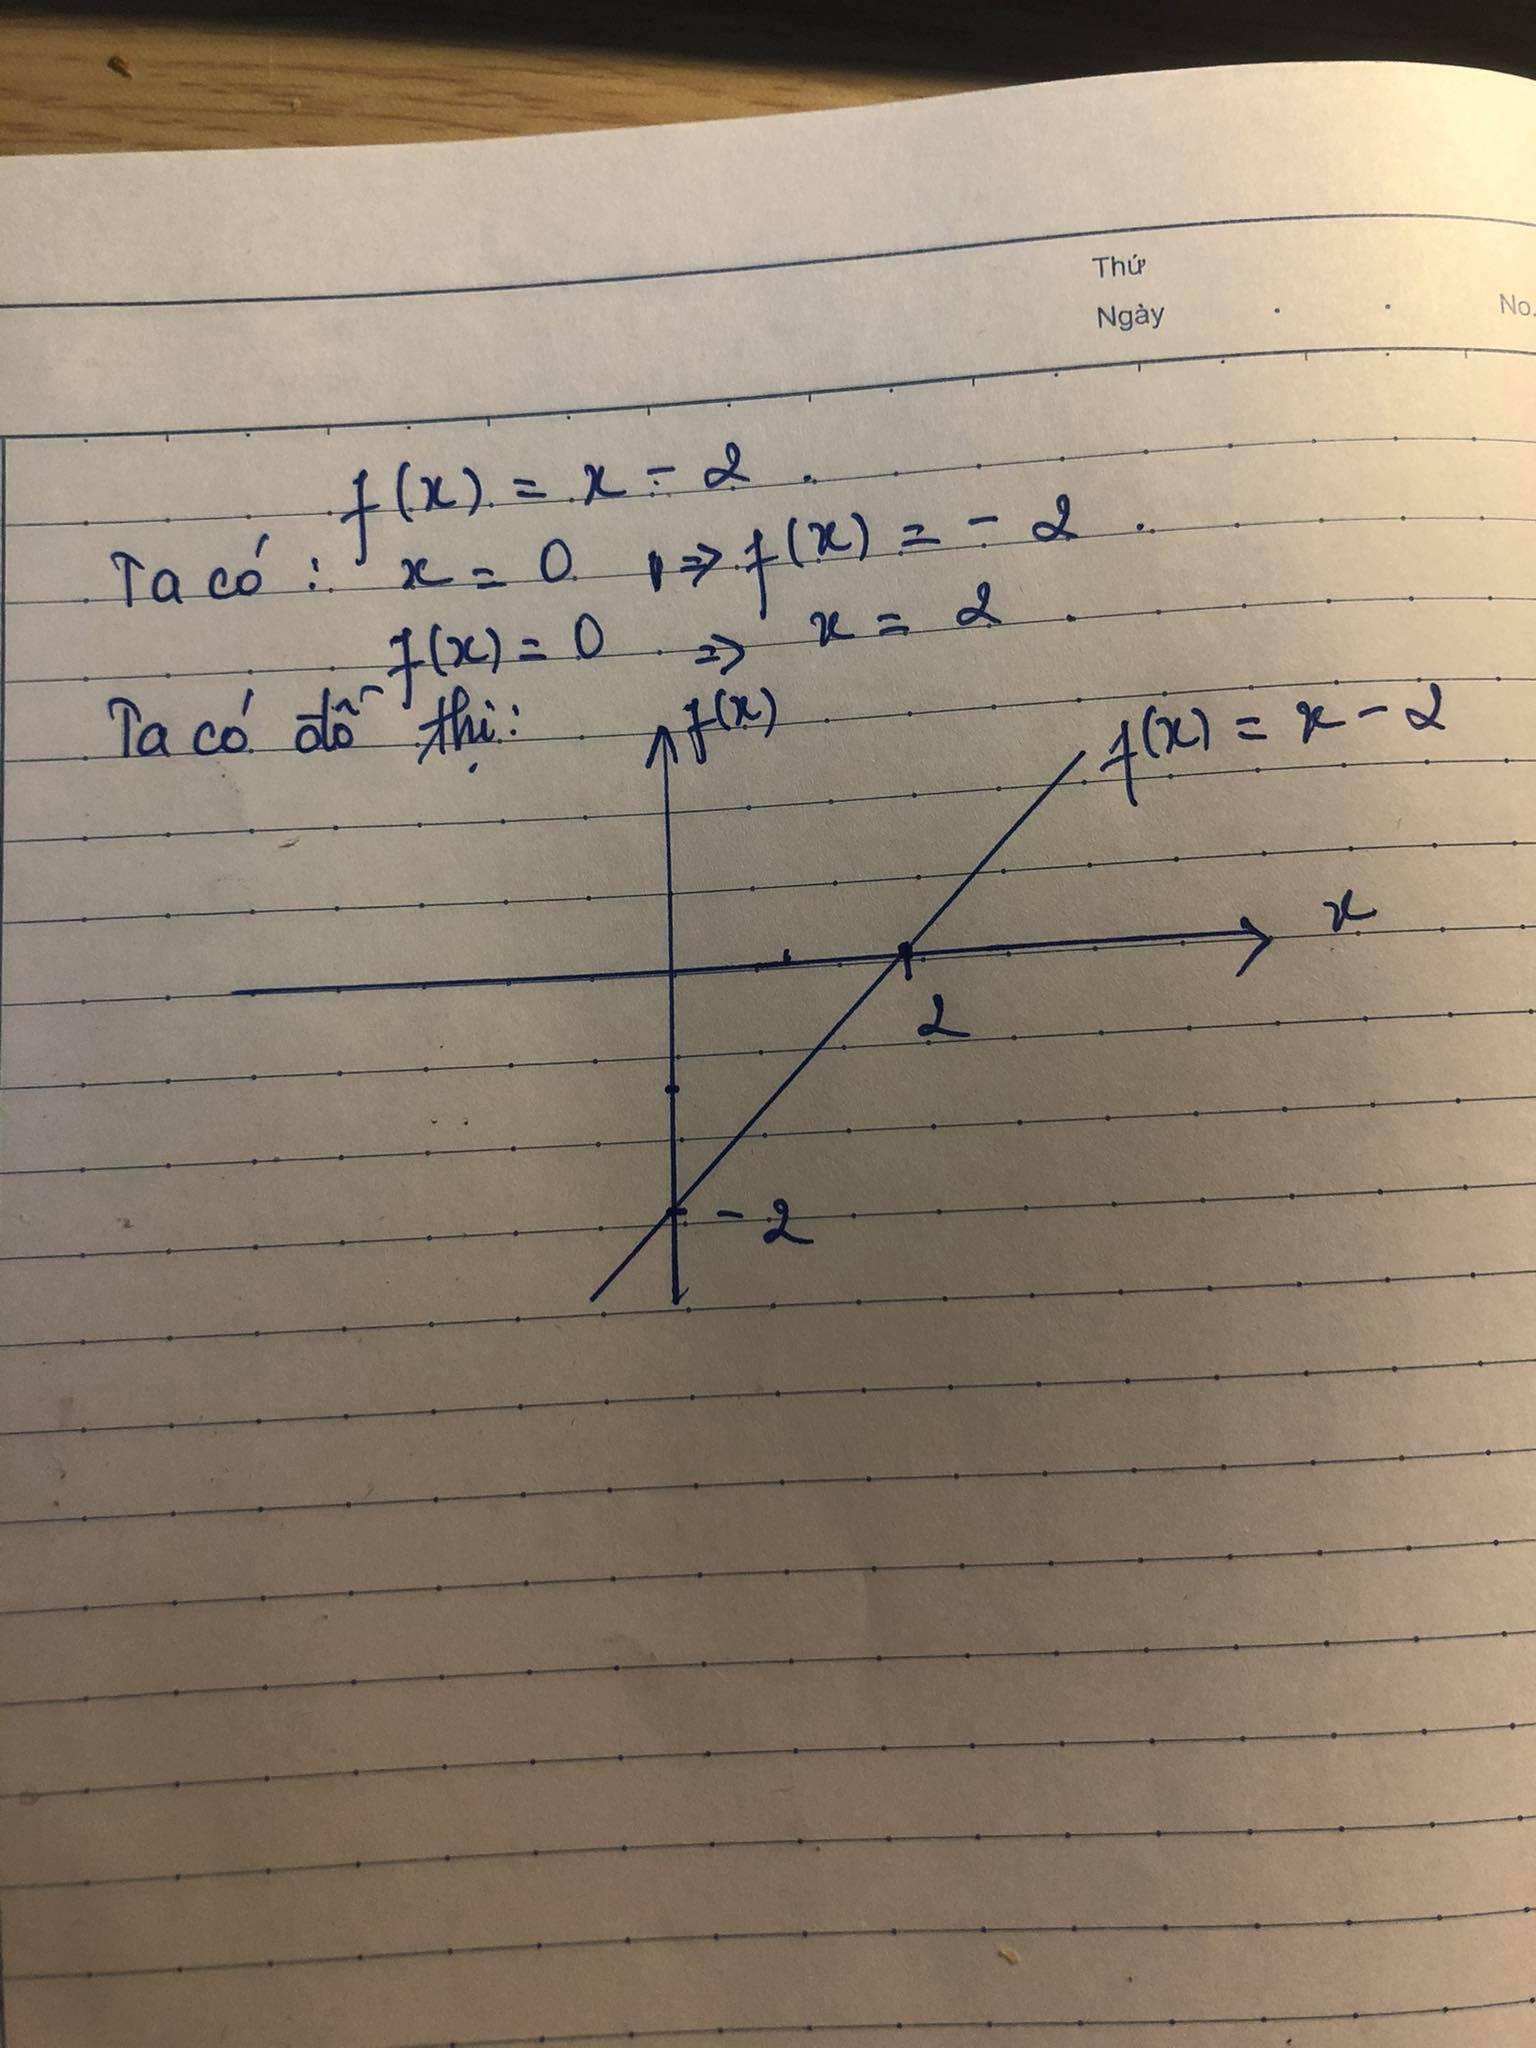 Thứ
Ngày . . No.
f(x) = x - 2 .
Ta có : x = 0 => f(x) = - 2 .
f(x) = 0 => x = 2 .
Ta có đồ thị :
f(x)
f(x) = x - 2
x
2
- 2